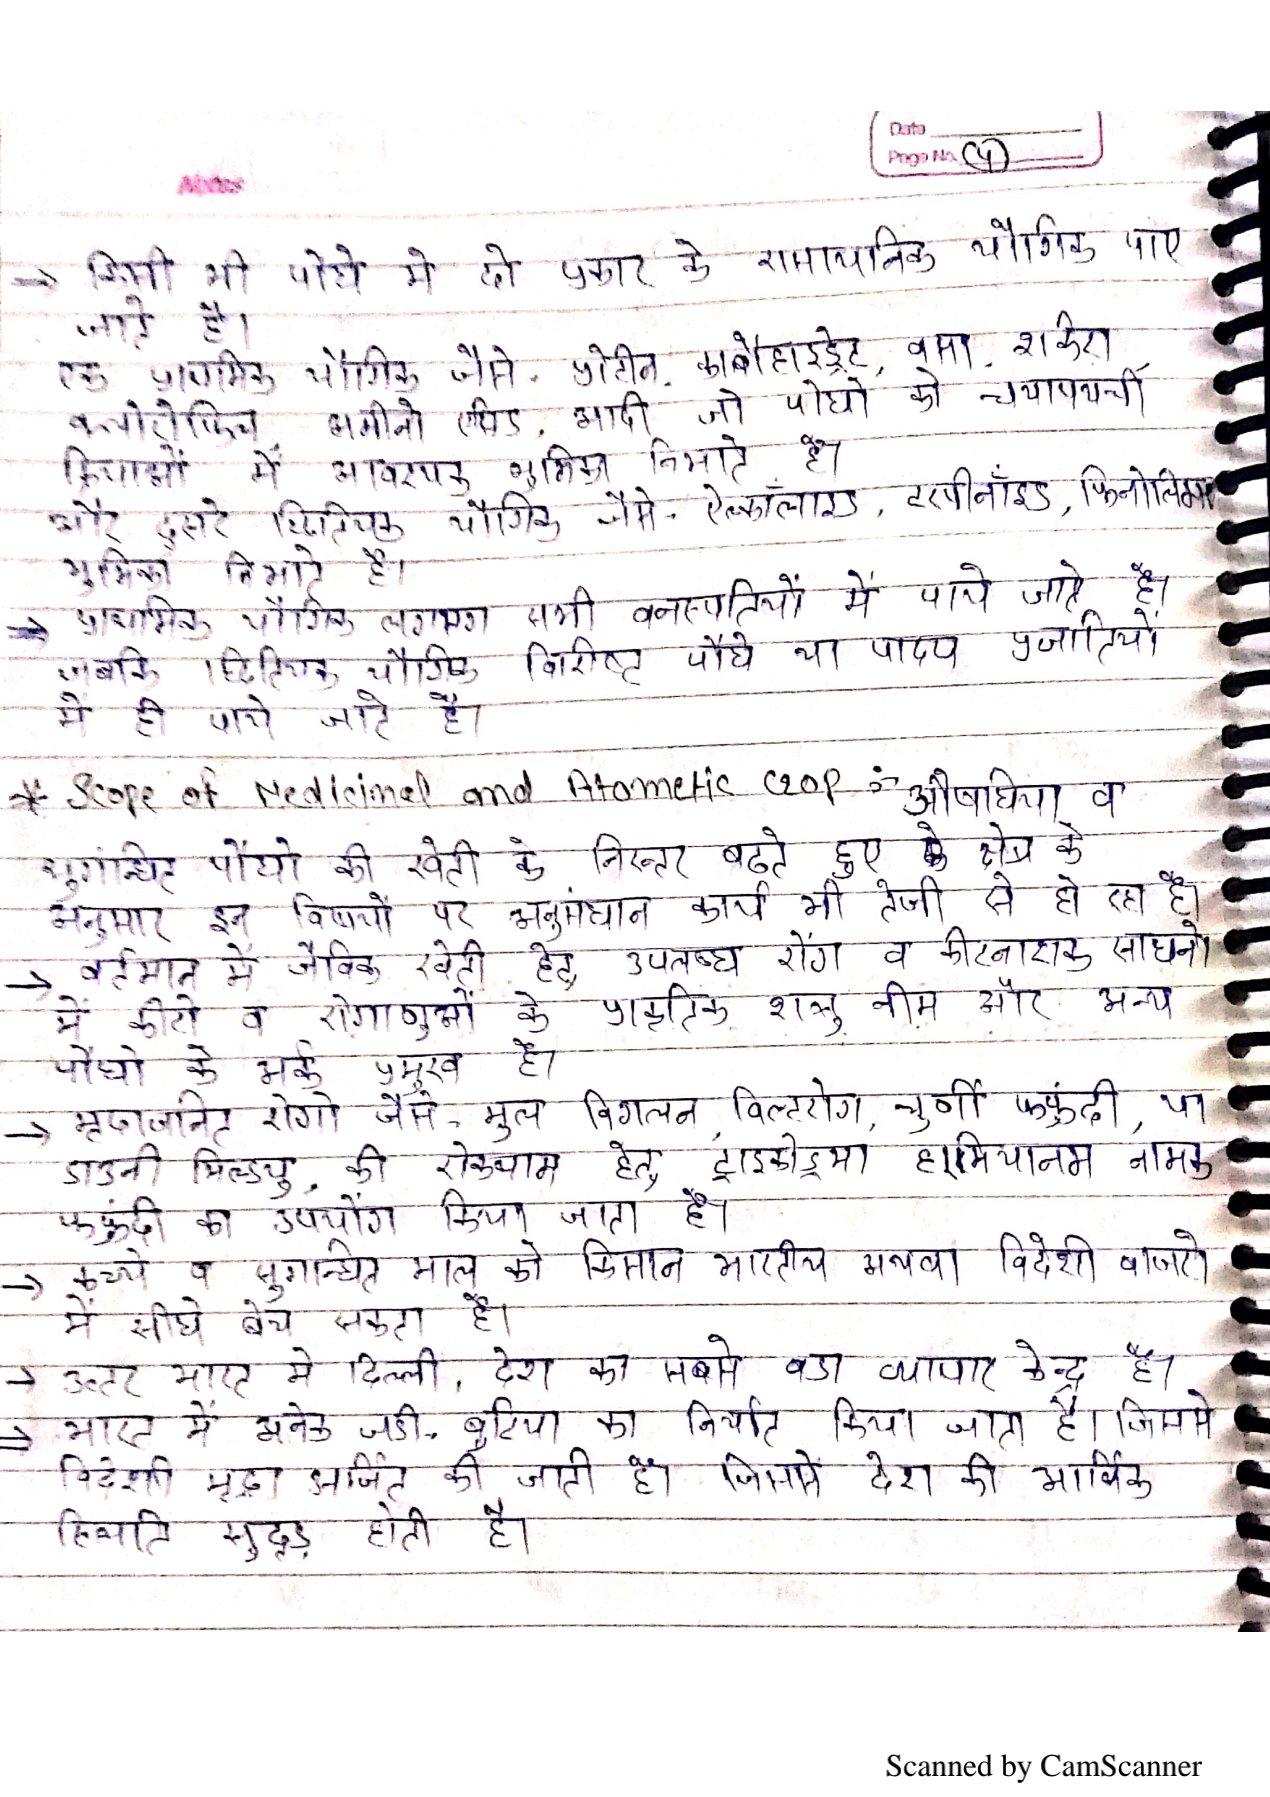 Date
Page No. (4)
Notes
→ किसी भी पौधे मे दो प्रकार के रासायनिक यौगिक पाए
जाते है।
एक प्राथमिक यौगिक जैसे - प्रोटीन, कार्बोहाइड्रेट, वसा, शर्करा,
क्लोरोफिल, अमीनो एसिड, आदी जो पौघो की चयापचयी
क्रियाओं में आवश्यक भुमिका निभाते है।
और दुसरे द्वितियक यौगिक जैसे - ऐल्कॉलाइड, टरपीनॉइड, फिनोलिक्स
भुमिका निभाते है।
→ प्राथमिक यौगिक लगभग सभी वनस्पतियों में पाये जाते है।
जबकि द्वितियक यौगिक विशिष्ट पौधे या पादप प्रजातियों
में ही पाये जाते है।
* Scope of Medicinal and Atometic crop :- औषधिया व
सुगन्धित पौधो की खेती के निरन्तर बढते हुए के क्षेत्र के
अनुसार इन विषयों पर अनुसंधान कार्य भी तेजी से हो रहा है।
→ वर्तमान में जैविक खेती हेतु उपलब्ध रोग व कीटनाशक साधनो
में कीटो व रोगाणुओं के प्राकृतिक शत्रु नीम और अन्य
पौधो के अर्क प्रमुख है।
→ मृदाजनित रोगो जैसे - मुल विगलन, विल्टरोग, चुर्णी फफुंदी, या
डाउनी मिल्ड्यु, की रोकथाम हेतु ट्राइकोड्रमा हारमियानम नामक
फफुंदी का उपयोग किया जाता है।
→ कच्चे व सुगन्धित माल को किसान भारतीय अथवा विदेशी बाजारो
में सीधे बेच सकता है।
→ उत्तर भारत मे दिल्ली, देश का सबसे बडा व्यापार केन्द्र है।
→ भारत में अनेक जडी - बुटिया का निर्यात किया जाता है। जिससे
विदेशी मुद्रा अर्जित की जाती है। जिससे देश की आर्थिक
स्थिति सुदृड़ होती है।
Scanned by CamScanner